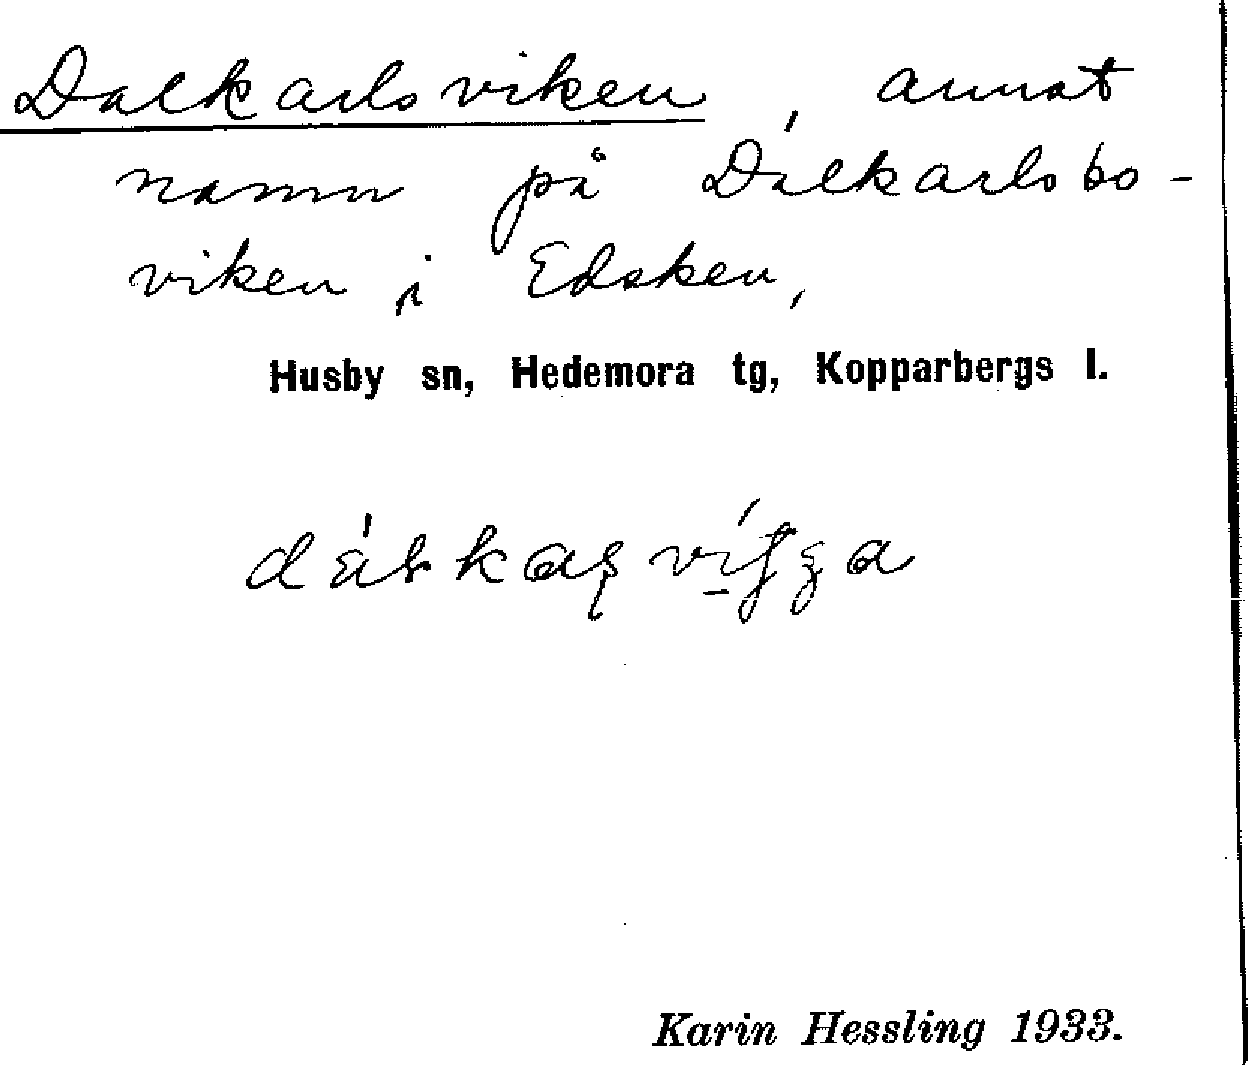 Dalkarlsviken, annat
namn på Dalkarlsbo-
viken i Edsken,
Husby sn, Hedemora tg, Kopparbergs l.
Karin Hessling 1933.